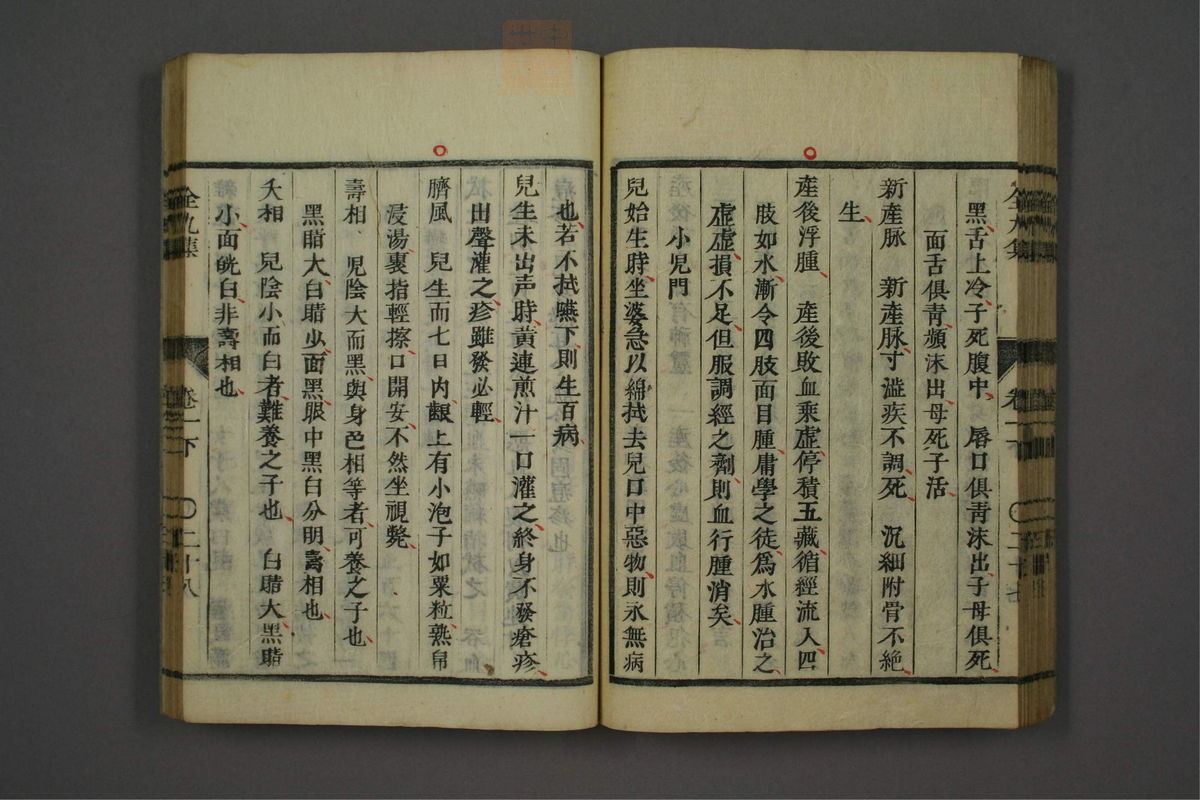 黑舌上冷子死腹中　唇口俱青沫出子母俱死
面舌俱青頻沫出母死子活
新產脉　新產脉寸溢疾不調死　沉細附骨不絶
生
產後浮腫　產後敗血乘虛停積五藏循經流入四
肢如水漸令四肢面目腫庸學之徒爲水腫治之
虛虛損不足但服調經之劑則血行腫消矣
小児門
兒始生時坐婆急以綿拭去兒口中惡物則永無病
全九集　卷一下　〇二十七
也若不拭嚥下則生百病
兒生未出声時黃連煎汁一口灌之終身不發瘡疹
出聲灌之疹雖發必輕
臍風　兒生而七日内齦上有小泡子如粟粒熟帛
浸湯裹指輕擦口開安不然坐視斃
壽相　児陰大而黑與身色相等者可養之子也
黑睛大白睛少面黑眼中黑白分明壽相也
夭相　兒陰小而白者難養之子也　白睛大黑睛
小面㿠白非壽相也
全九集　卷一下　〇二十八